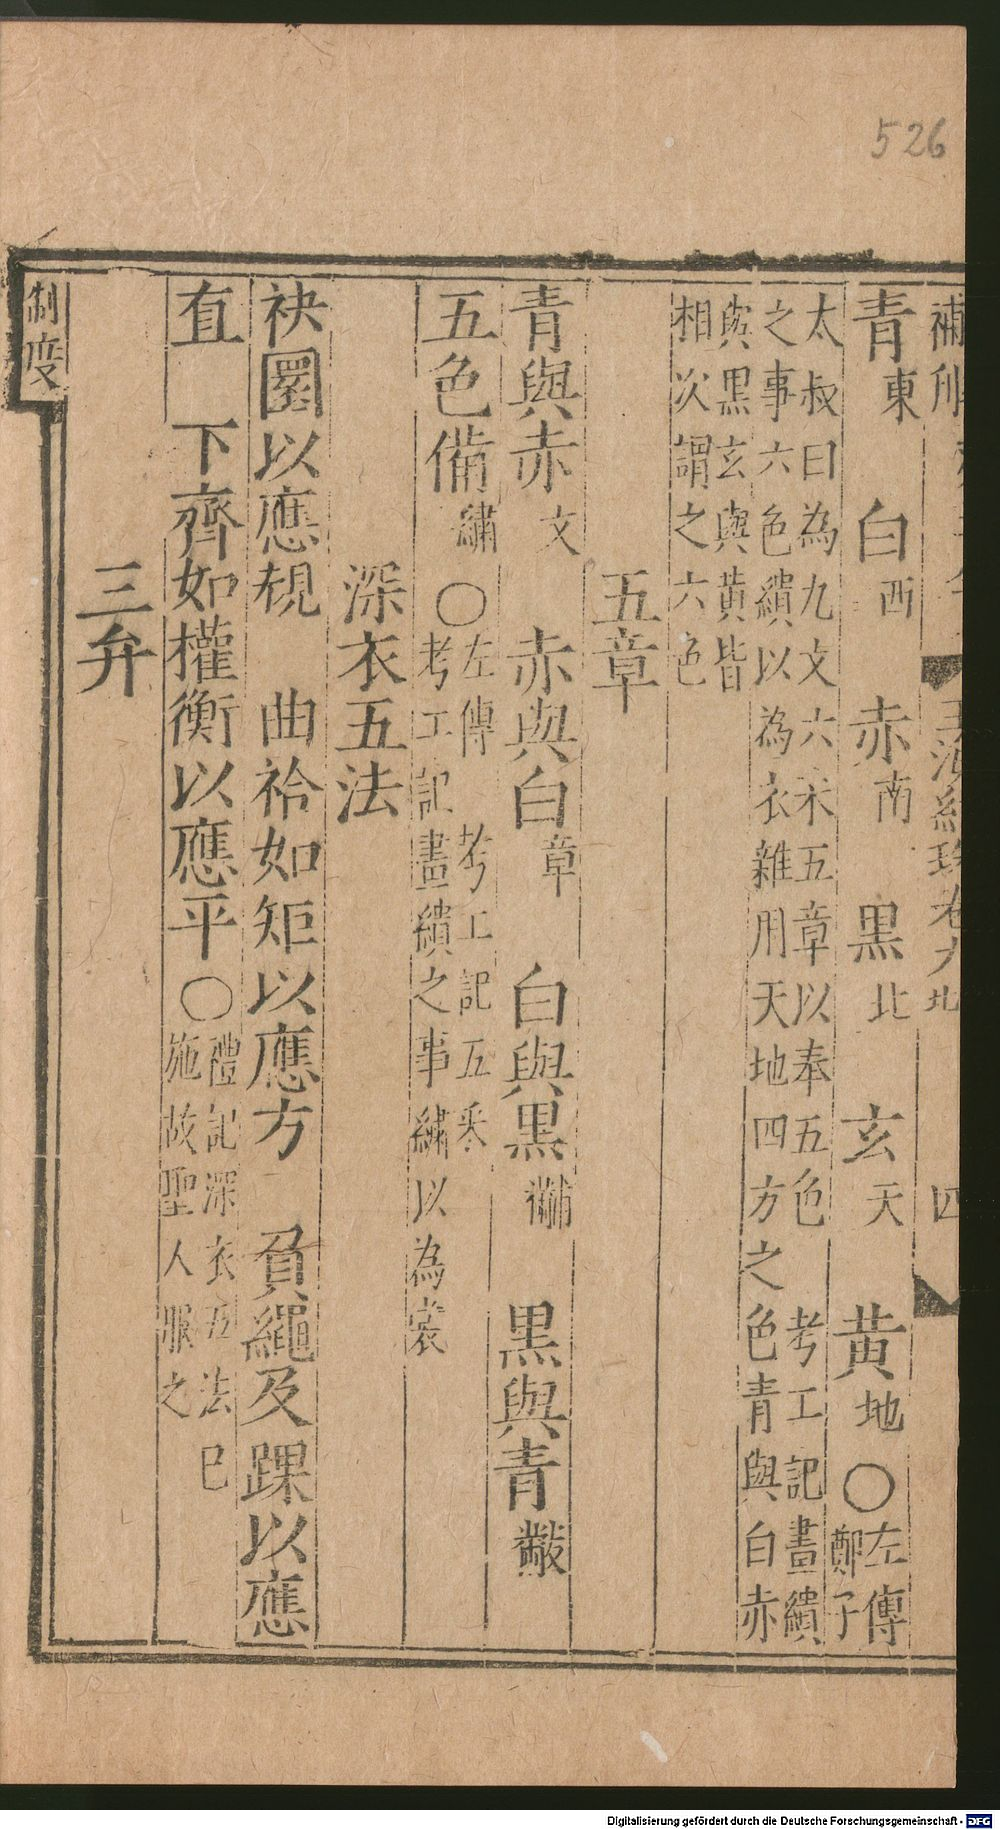 526
青東 白西 赤南 黒北 玄天 黄地 ○左傳鄭子
太叔曰為九文六采五章以奉五色 考工記畫繢
之事六色繢以為衣雜用天地四方之色青與白赤
與黒玄與黄皆
相次謂之六色
五章
青與赤文 赤與白章 白與黒黼 黒與青黻
五色備繡 ○左傳 考工記五采
考工記畫繢之事繡以為裳
深衣五法
袂圜以應規 曲袷如矩以應方 負繩及踝以應
直 下齊如權衡以應平 ○禮記深衣五法已
施故聖人服之
三弁
制度
四
Digitalisierung gefördert durch die Deutsche Forschungsgemeinschaft - DFG